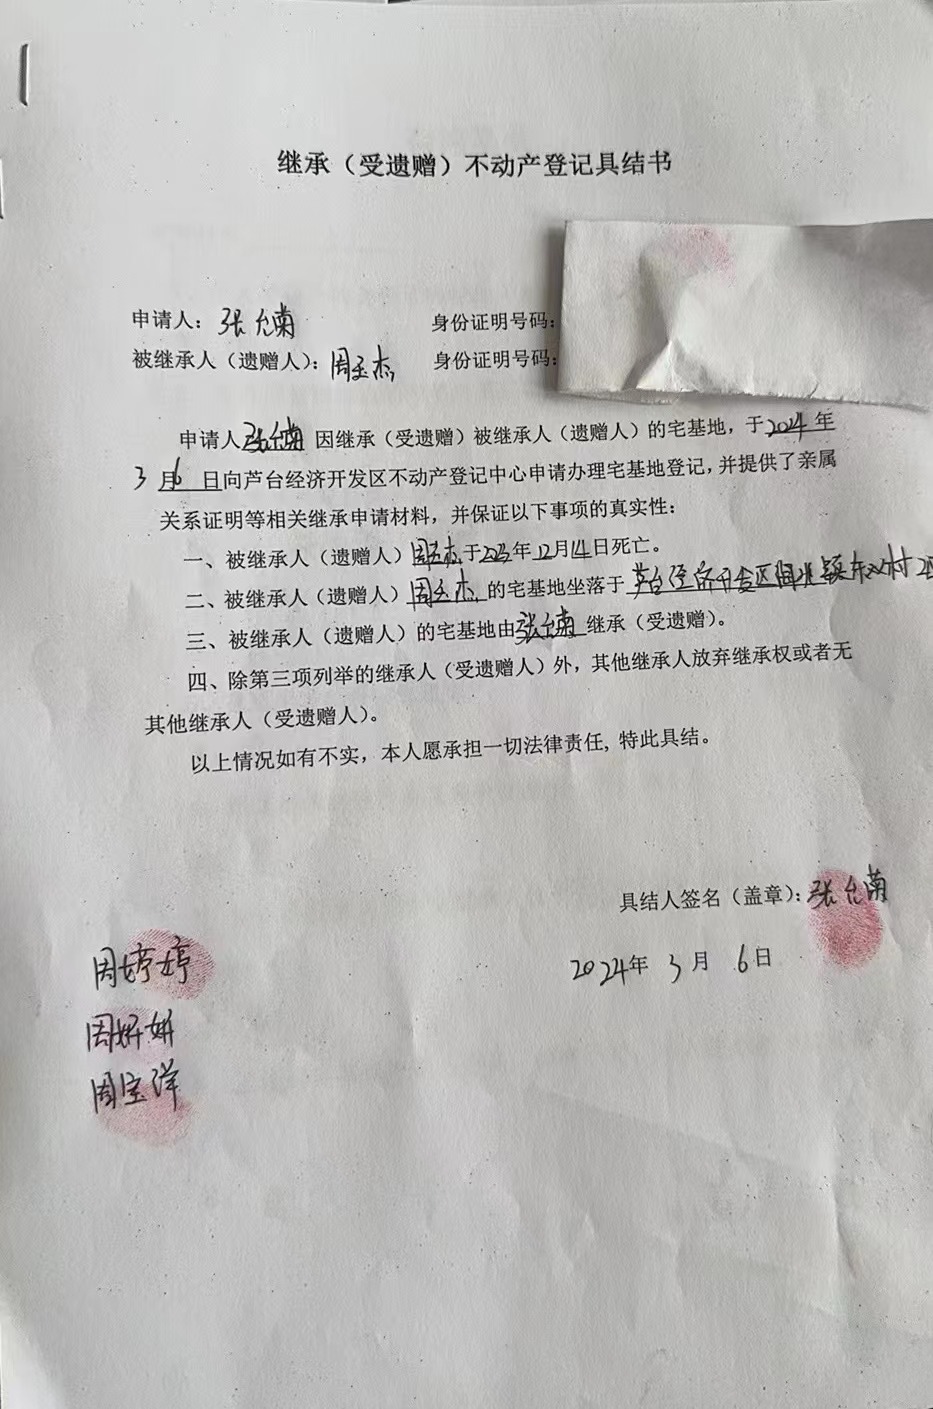 继承（受遗赠）不动产登记具结书
申请人：张允南 身份证明号码：
被继承人（遗赠人）：周玉杰 身份证明号码：
申请人张允南因继承（受遗赠）被继承人（遗赠人）的宅基地，于2024年
3月6日向芦台经济开发区不动产登记中心申请办理宅基地登记，并提供了亲属
关系证明等相关继承申请材料，并保证以下事项的真实性：
一、被继承人（遗赠人）周玉杰于2023年12月14日死亡。
二、被继承人（遗赠人）周玉杰的宅基地坐落于芦台经济开发区 镇东 村
三、被继承人（遗赠人）的宅基地由张允南继承（受遗赠）。
四、除第三项列举的继承人（受遗赠人）外，其他继承人放弃继承权或者无
其他继承人（受遗赠人）。
以上情况如有不实，本人愿承担一切法律责任，特此具结。
具结人签名（盖章）：张允南
2024年3月6日
周婷婷
周妍妍
周宝洋